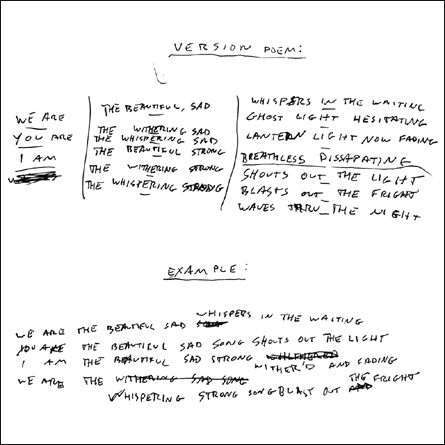 VERSION POEM:
WE ARE
YOU ARE
I AM
THE BEAUTIFUL, SAD
THE WITHERING SAD
THE WHISPERING SAD
THE BEAUTIFUL STRONG
THE WITHERING STRONG
THE WHISPERING STRONG
WHISPERS IN THE WAITING
GHOST LIGHT HESITATING
LANTERN LIGHT NOW FADING
BREATHLESS DISSAPATING
SHOUTS OUT THE LIGHT
BLASTS OUT THE FRIGHT
WAVES THRU THE NIGHT
EXAMPLE:
WE ARE THE BEAUTIFUL SAD WHISPERS IN THE WAITING
YOU ARE THE BEAUTIFUL SAD SONG SHOUTS OUT THE LIGHT
I AM THE BEAUTIFUL SAD STRONG WITHER'D AND FADING
WE ARE THE WITHERING SAD SONG
WHISPERING STRONG SONG BLAST OUT THE FRIGHT